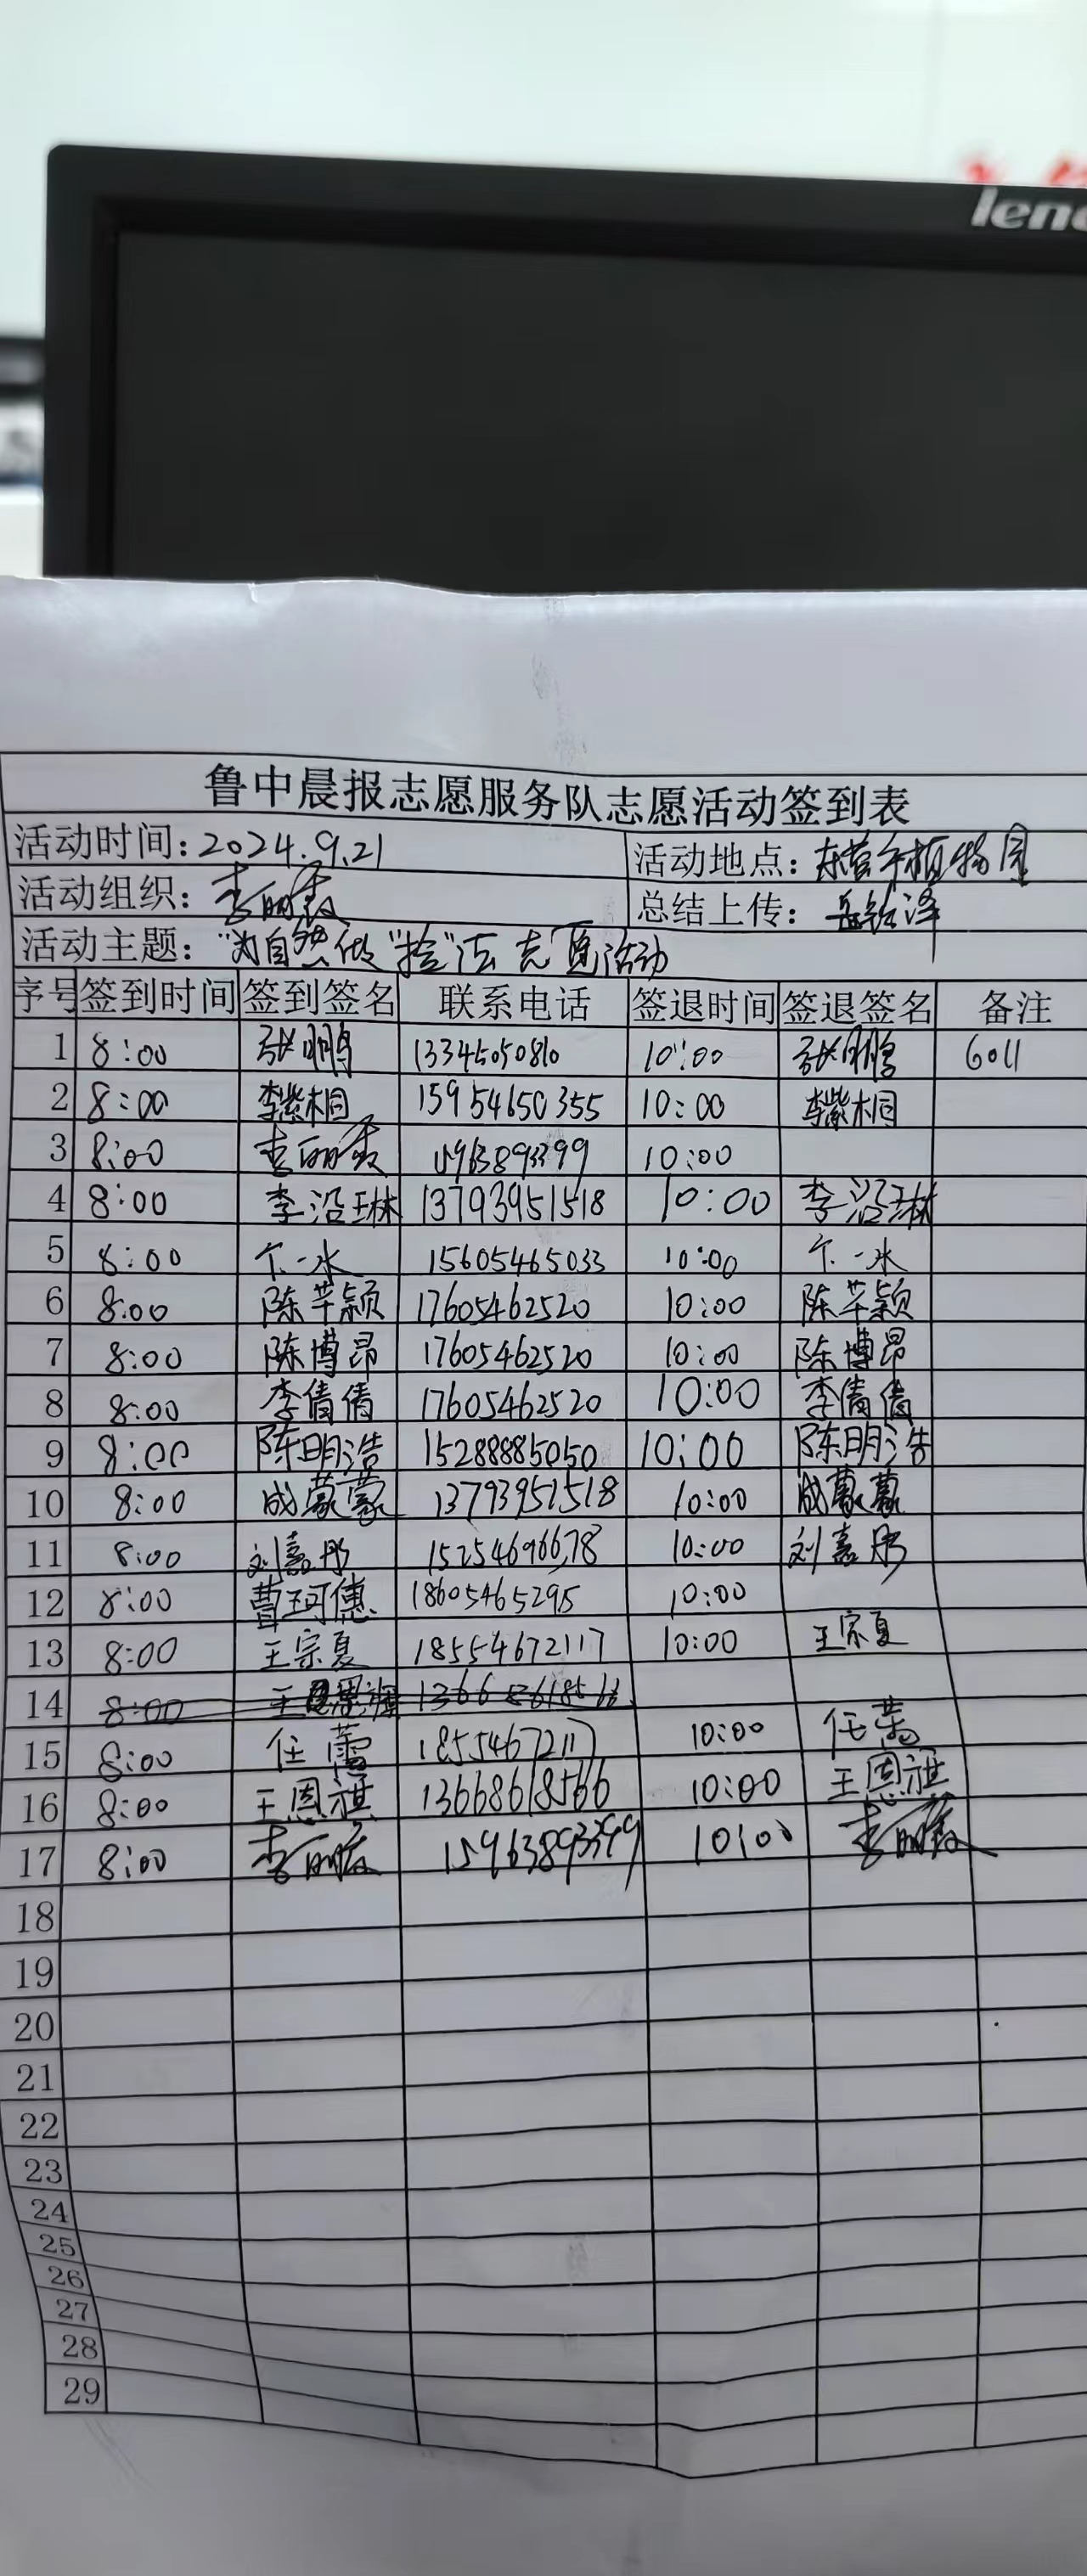 leno
鲁中晨报志愿服务队志愿活动签到表
活动时间:2024.9.21 活动地点:东营市植物园
活动组织:李丽霞 总结上传:岳钰泽
活动主题:"为自然做"捡"法 志愿活动
序号 签到时间 签到签名 联系电话 签退时间 签退签名 备注
1 8:00 张鹏 13345050810 10:00 张鹏 6011
2 8:00 李紫桐 15954650355 10:00 李紫桐
3 8:00 李丽霞 15963893399 10:00
4 8:00 李沿琳 13793951518 10:00 李沿琳
5 8:00 15605465033 10:00
6 8:00 陈芊颖 17605462520 10:00 陈芊颖
7 8:00 陈博昂 17605462520 10:00 陈博昂
8 8:00 李倩倩 17605462520 10:00 李倩倩
9 8:00 陈明浩 15288885050 10:00 陈明浩
10 8:00 成蒙蒙 13793951518 10:00 成蒙蒙
11 8:00 刘嘉彤 15254696678 10:00 刘嘉彤
12 8:00 曹珂僡 18605465295 10:00
13 8:00 王宗夏 18554672117 10:00 王宗夏
14 8:00 王
15 8:00 任蕾 18554672117 10:00 任蕾
16 8:00 王恩祺 13668618566 10:00 王恩祺
17 8:00 李丽霞 15963893399 10:00 李丽霞
18
19
20
21
22
23
24
25
26
27
28
29